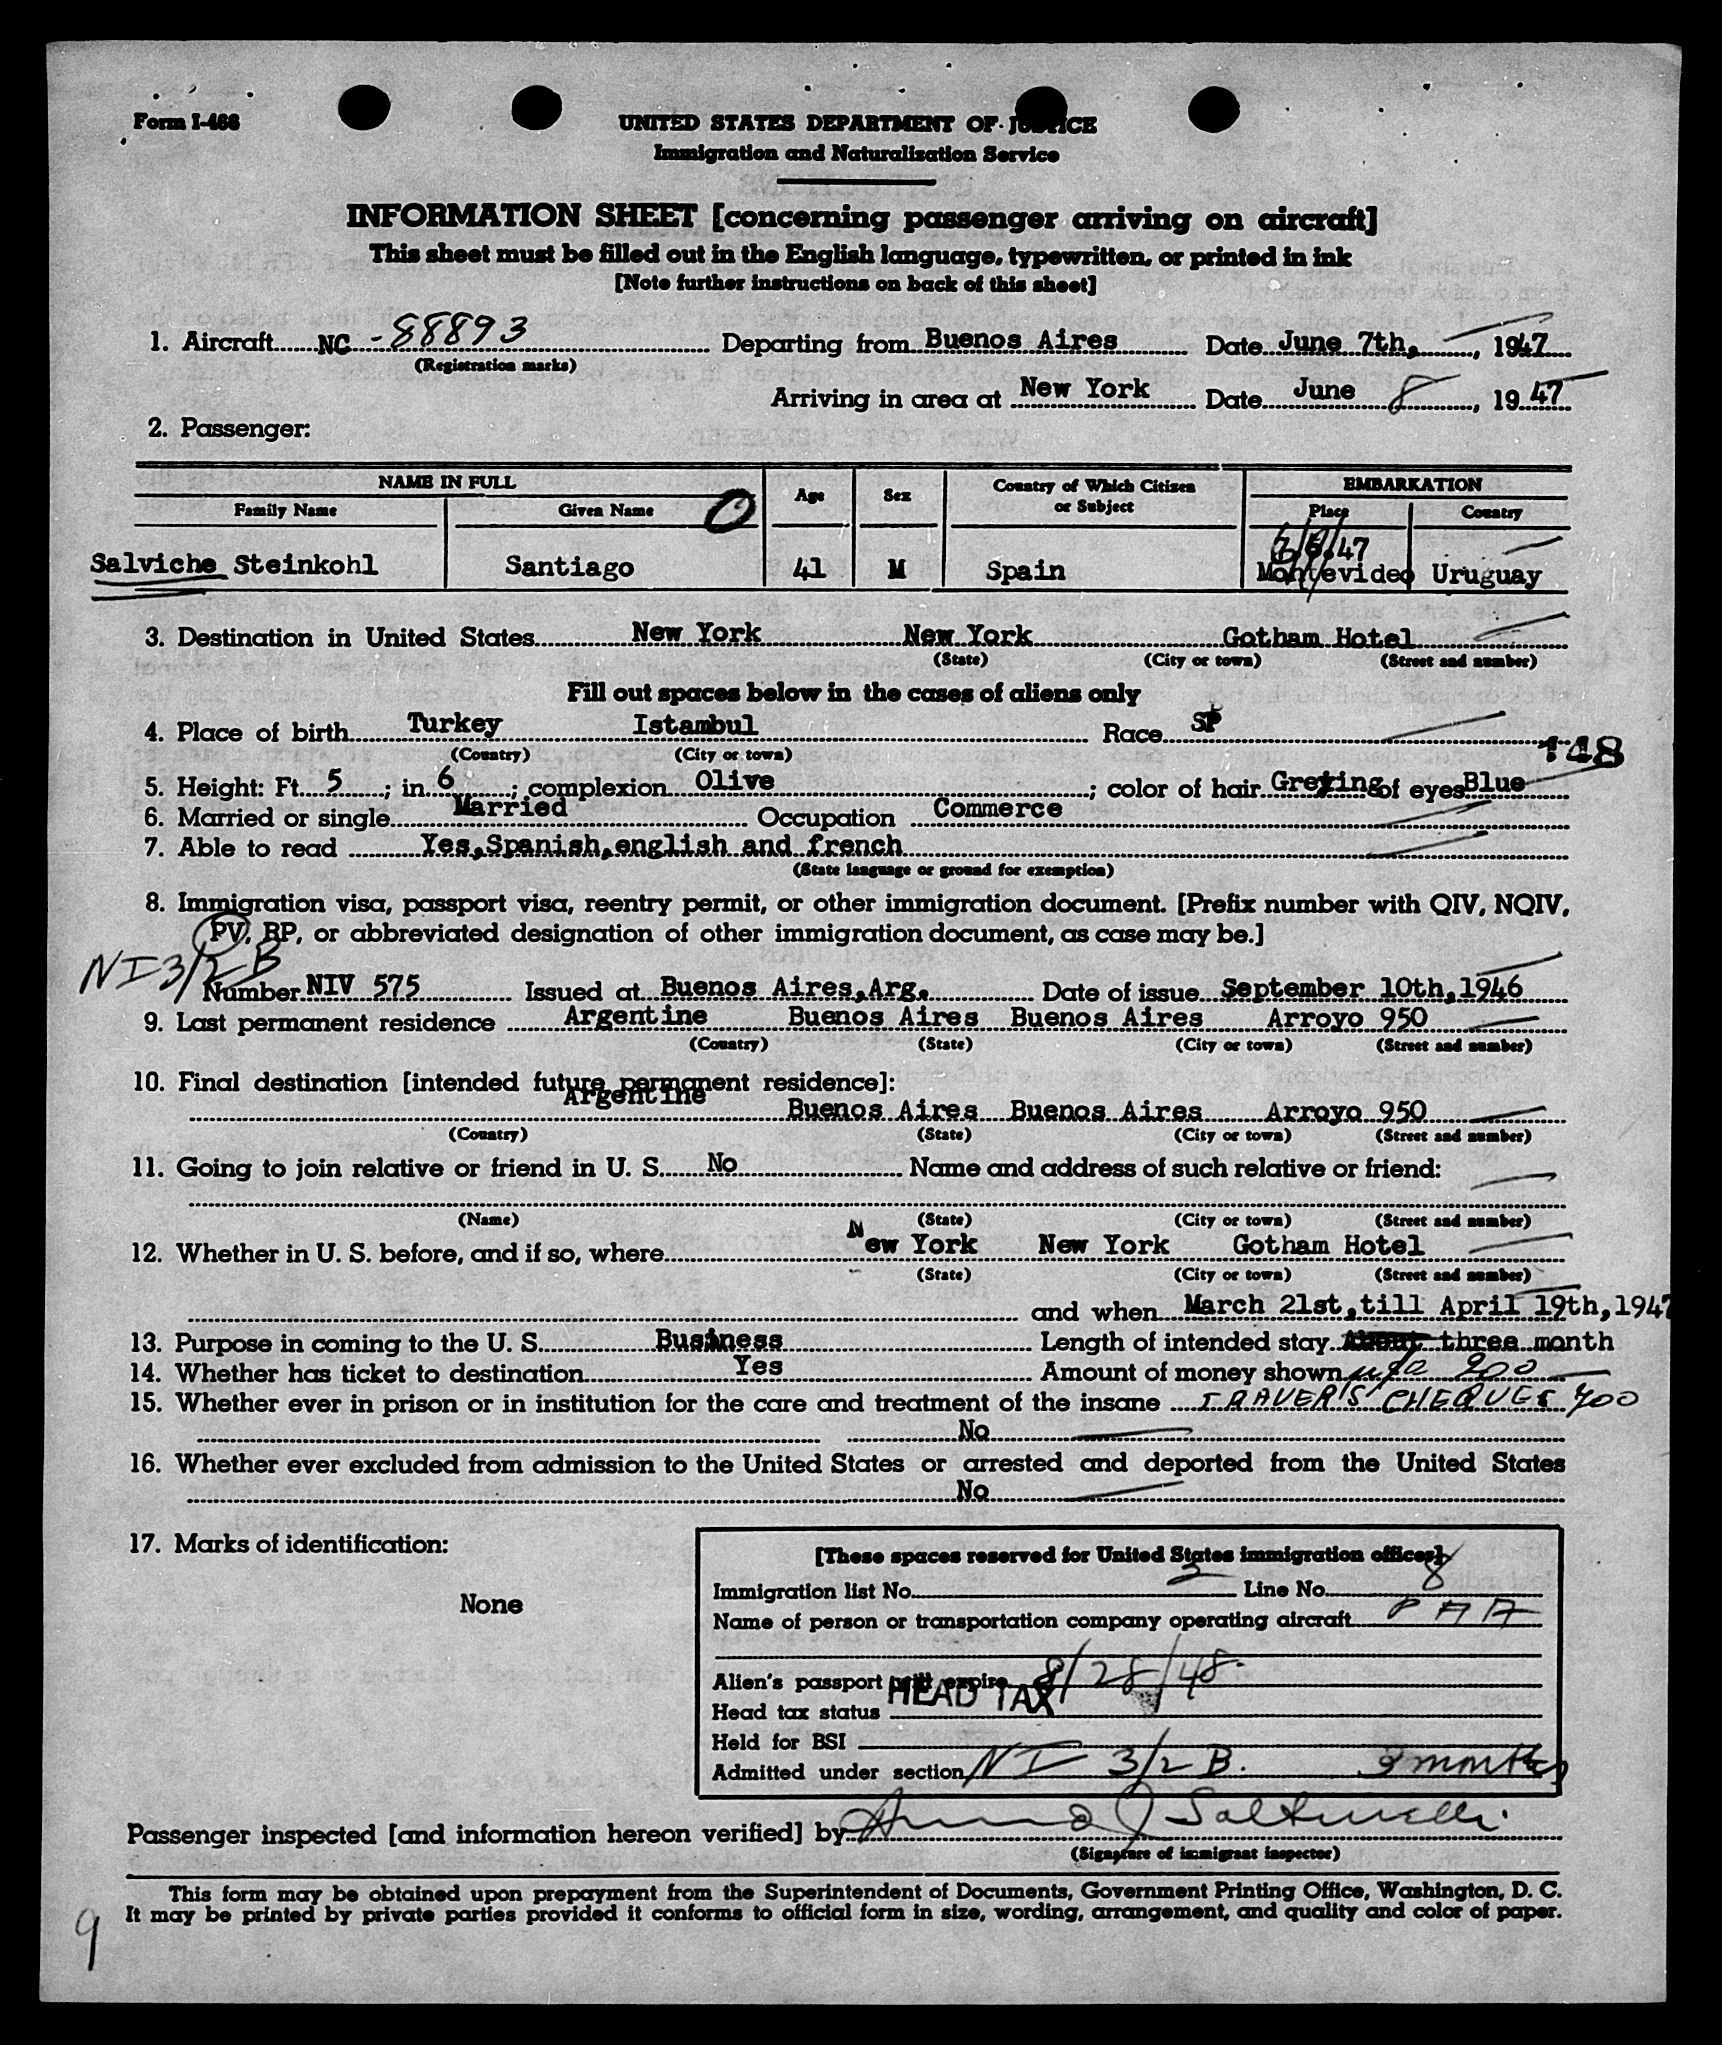 Form I-466
UNITED STATES DEPARTMENT OF JUSTICE
Immigration and Naturalization Service
INFORMATION SHEET [concerning passenger arriving on aircraft]
This sheet must be filled out in the English language, typewritten, or printed in ink
[Note further instructions on back of this sheet]
1. Aircraft NC -88893 Departing from Buenos Aires Date June 7th, , 1947
(Registration marks)
Arriving in area at New York Date June 8 , 19 47
2. Passenger:
NAME IN FULL Age Sex Country of Which Citizen or Subject EMBARKATION
Family Name Given Name Place Country
7/6/47
Salviche Steinkohl Santiago 41 M Spain Montevideo Uruguay
3. Destination in United States New York New York Gotham Hotel
(State) (City or town) (Street and number)
Fill out spaces below in the cases of aliens only
4. Place of birth Turkey Istambul Race SP
(Country) (City or town)
148
5. Height: Ft. 5 ; in. 6 ; complexion Olive ; color of hair Greying of eyes Blue
6. Married or single Married Occupation Commerce
7. Able to read Yes,Spanish,english and french
(State language or ground for exemption)
8. Immigration visa, passport visa, reentry permit, or other immigration document. [Prefix number with QIV, NQIV,
PV, RP, or abbreviated designation of other immigration document, as case may be.]
NI 3/2 B
Number NIV 575 Issued at Buenos Aires,Arg. Date of issue September 10th,1946
9. Last permanent residence Argentine Buenos Aires Buenos Aires Arroyo 950
(Country) (State) (City or town) (Street and number)
10. Final destination [intended future permanent residence]:
Argentine Buenos Aires Buenos Aires Arroyo 950
(Country) (State) (City or town) (Street and number)
11. Going to join relative or friend in U. S. No Name and address of such relative or friend:
(Name) (State) (City or town) (Street and number)
12. Whether in U. S. before, and if so, where New York New York Gotham Hotel
(State) (City or town) (Street and number)
and when March 21st,till April 19th,1947
13. Purpose in coming to the U. S. Business Length of intended stay About three month
14. Whether has ticket to destination Yes Amount of money shown 900
15. Whether ever in prison or in institution for the care and treatment of the insane TRAVER'S CHEQUES 700
No
16. Whether ever excluded from admission to the United States or arrested and deported from the United States
No
17. Marks of identification:
None
[These spaces reserved for United States immigration officer]
Immigration list No. 3 Line No. 8
Name of person or transportation company operating aircraft PAA
Alien's passport will expire 8/28/48.
Head tax status HEAD TAX
Held for BSI
Admitted under section NI 3/2 B. 3 months
Passenger inspected [and information hereon verified] by
(Signature of immigrant inspector)
This form may be obtained upon prepayment from the Superintendent of Documents, Government Printing Office, Washington, D. C.
It may be printed by private parties provided it conforms to official form in size, wording, arrangement, and quality and color of paper.
9